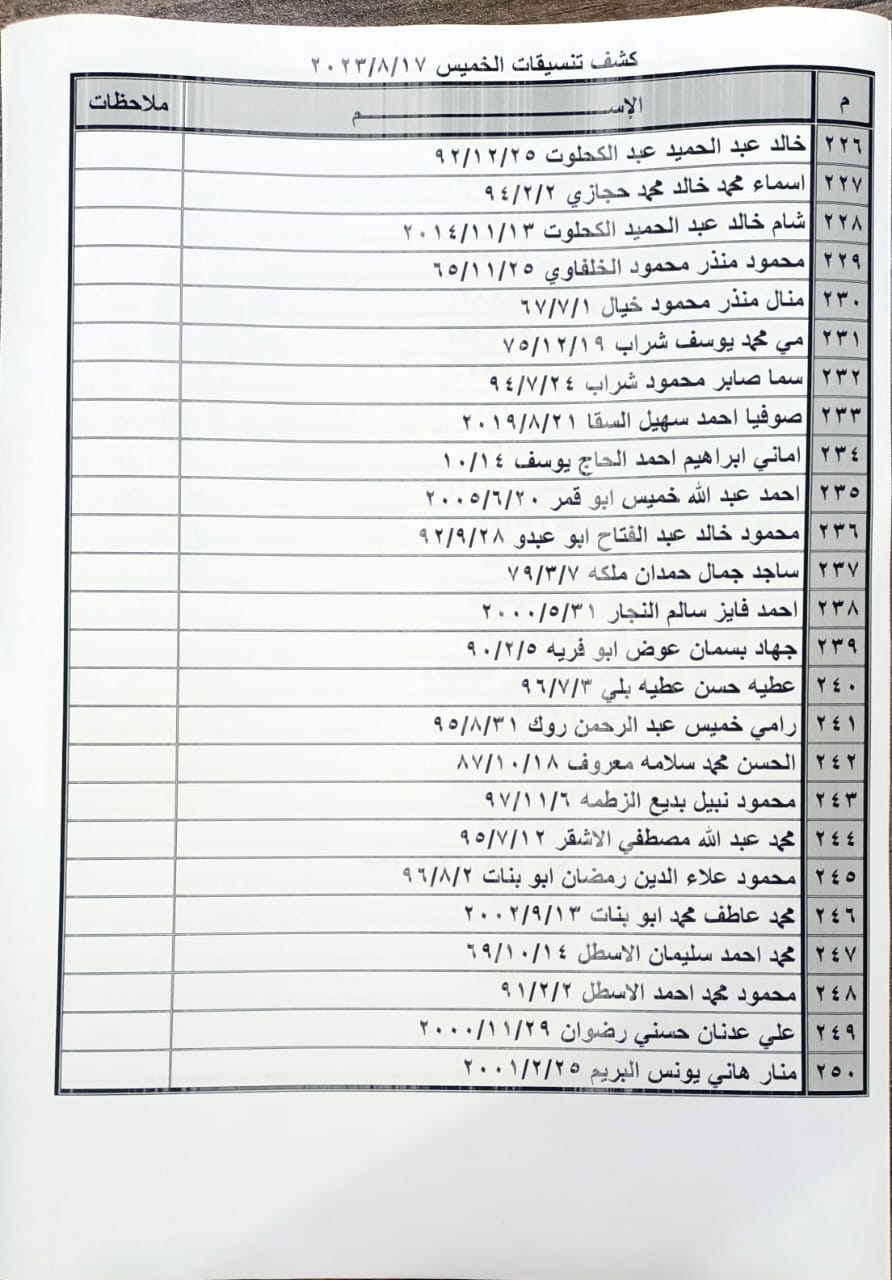 كشف تنسيقات الخميس ٢٠٢٣/٨/١٧
م الإســــــــــم ملاحظات
٢٢٦ خالد عبد الحميد عبد الكحلوت ٩٢/١٢/٢٥
٢٢٧ اسماء محمد خالد محمد حجازي ٩٤/٢/٢
٢٢٨ شام خالد عبد الحميد الكحلوت ٢٠١٤/١١/١٣
٢٢٩ محمود منذر محمود الخلفاوي ٦٥/١١/٢٥
٢٣٠ منال منذر محمود خيال ٦٧/٧/١
٢٣١ مي محمد يوسف شراب ٧٥/١٢/١٩
٢٣٢ سما صابر محمود شراب ٩٤/٧/٢٤
٢٣٣ صوفيا احمد سهيل السقا ٢٠١٩/٨/٢١
٢٣٤ اماني ابراهيم احمد الحاج يوسف ١٠/١٤
٢٣٥ احمد عبد الله خميس ابو قمر ٢٠٠٥/٦/٢٠
٢٣٦ محمود خالد عبد الفتاح ابو عبدو ٩٢/٩/٢٨
٢٣٧ ساجد جمال حمدان ملكه ٧٩/٣/٧
٢٣٨ احمد فايز سالم النجار ٢٠٠٠/٥/٣١
٢٣٩ جهاد بسمان عوض ابو فريه ٩٠/٢/٥
٢٤٠ عطيه حسن عطيه بلي ٩٦/٧/٣
٢٤١ رامي خميس عبد الرحمن روك ٩٥/٨/٣١
٢٤٢ الحسن محمد سلامه معروف ٨٧/١٠/١٨
٢٤٣ محمود نبيل بديع الزطمه ٩٧/١١/٦
٢٤٤ محمد عبد الله مصطفي الاشقر ٩٥/٧/١٢
٢٤٥ محمود علاء الدين رمضان ابو بنات ٩٦/٨/٢
٢٤٦ محمد عاطف محمد ابو بنات ٢٠٠٢/٩/١٣
٢٤٧ محمد احمد سليمان الاسطل ٦٩/١٠/١٤
٢٤٨ محمود محمد احمد الاسطل ٩١/٢/٢
٢٤٩ علي عدنان حسني رضوان ٢٠٠٠/١١/٢٩
٢٥٠ منار هاني يونس البريم ٢٠٠١/٢/٢٥